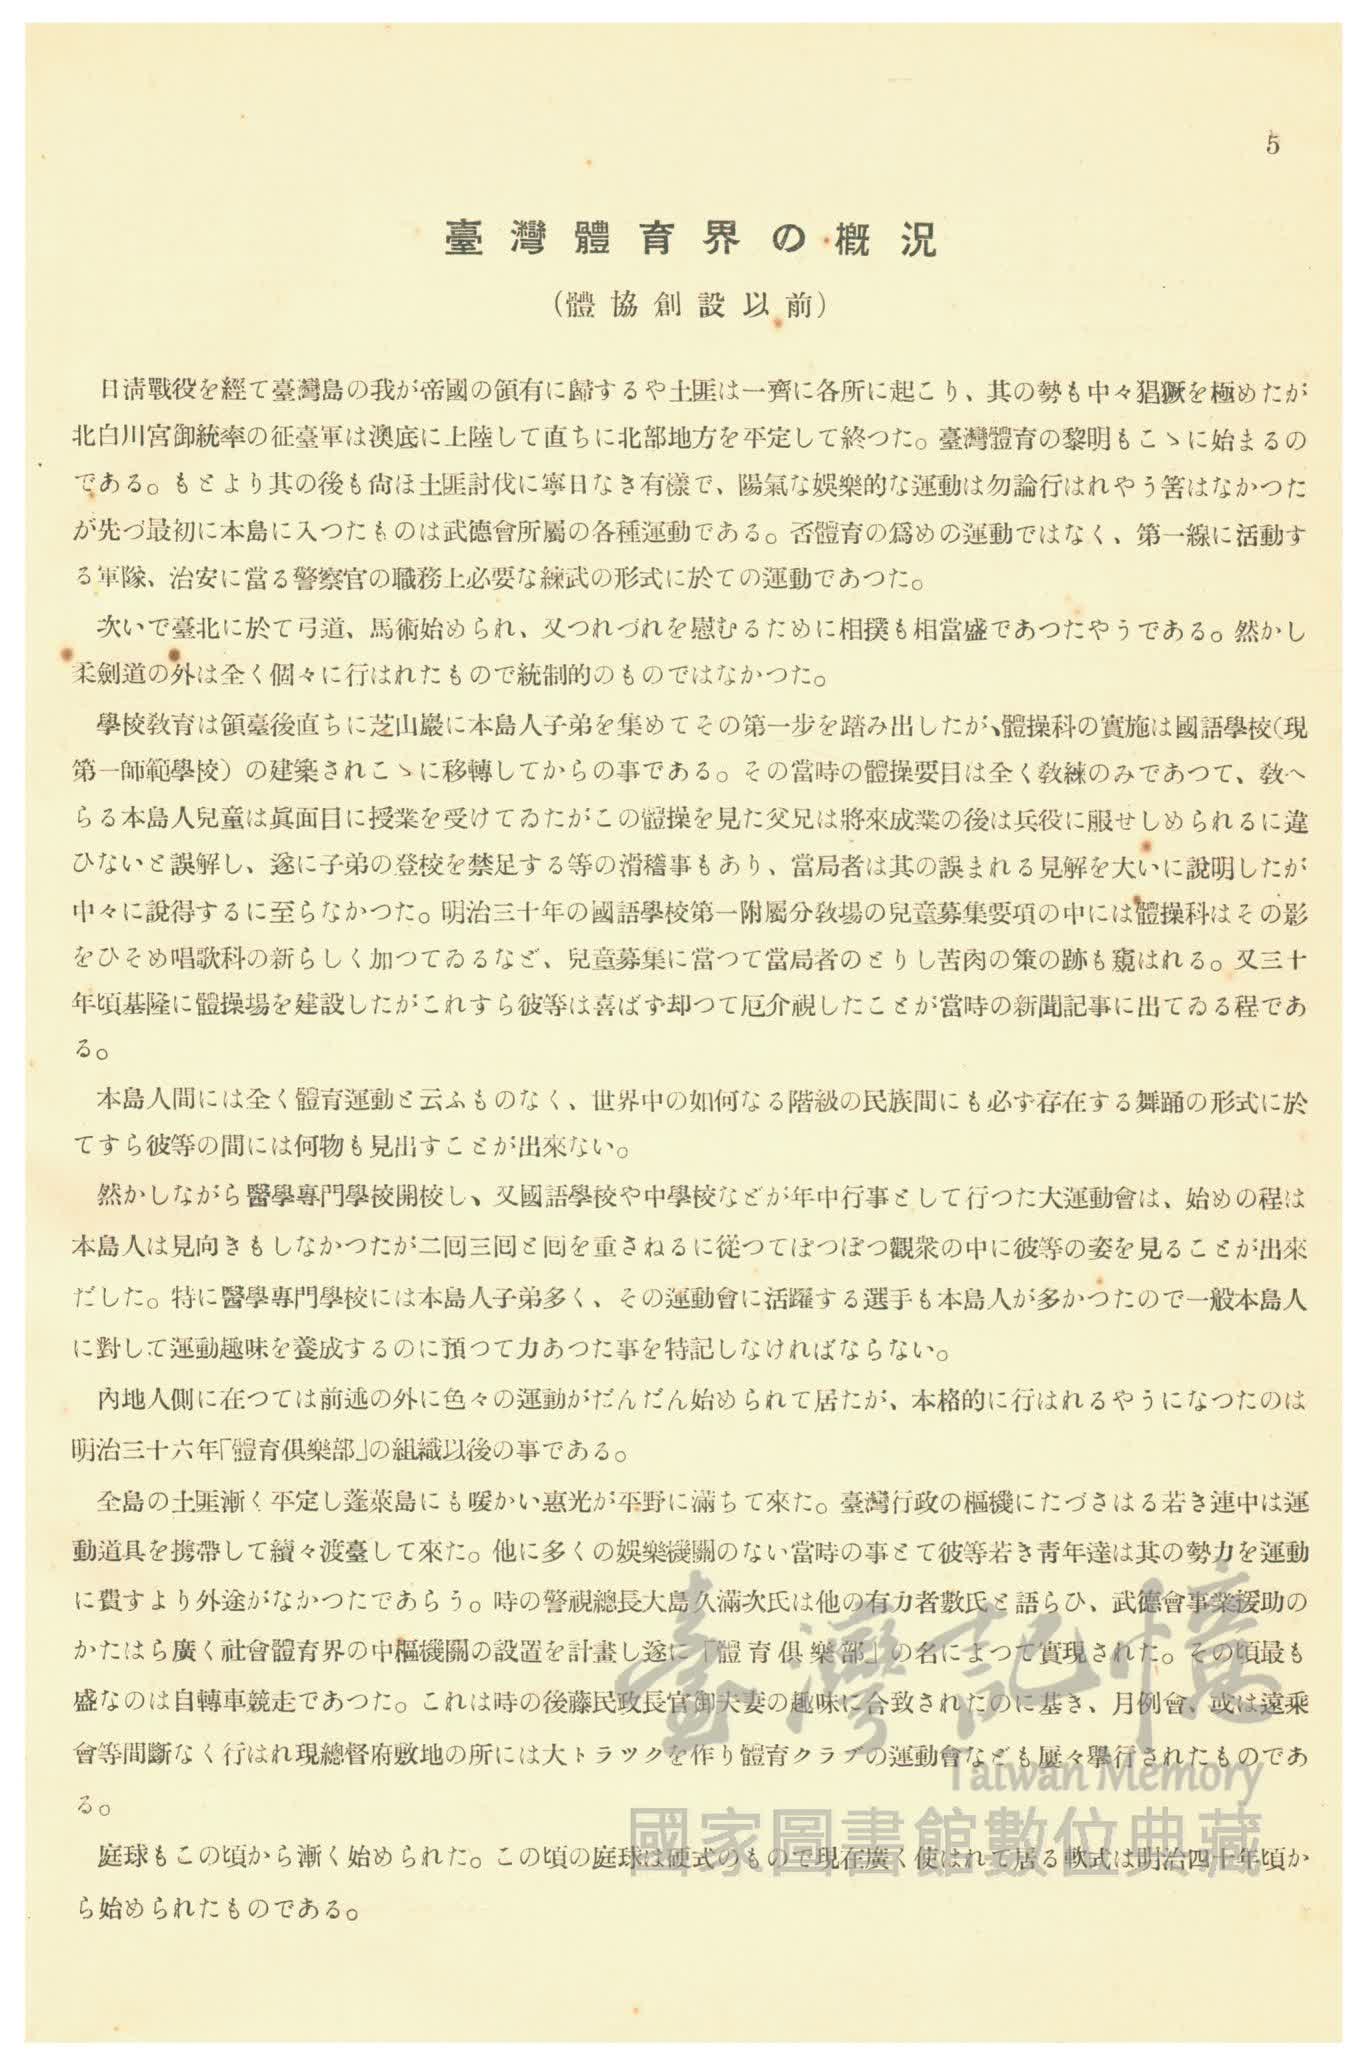 5
臺灣體育界の概況
(體協創設以前)
日淸戰役を經て臺灣島の我が帝國の領有に歸するや土匪は一齊に各所に起こり、其の勢も中々猖獗を極めたが
北白川宮御統率の征臺軍は澳底に上陸して直ちに北部地方を平定して終つた。臺灣體育の黎明もこゝに始まるの
である。もとより其の後も尙ほ土匪討伐に寧日なき有樣で、陽氣な娯樂的な運動は勿論行はれやう筈はなかつた
が先づ最初に本島に入つたものは武德會所屬の各種運動である。否體育の爲めの運動ではなく、第一線に活動す
る軍隊、治安に當る警察官の職務上必要な練武の形式に於ての運動であつた。
次いで臺北に於て弓道、馬術始められ、又つれづれを慰むるために相撲も相當盛であつたやうである。然かし
柔劍道の外は全く個々に行はれたもので統制的のものではなかつた。
學校敎育は領臺後直ちに芝山巖に本島人子弟を集めてその第一步を踏み出したが、體操科の實施は國語學校(現
第一師範學校）の建築されこゝに移轉してからの事である。その當時の體操要目は全く敎練のみであつて、敎へ
らる本島人兒童は眞面目に授業を受けてゐたがこの體操を見た父兄は將來成業の後は兵役に服せしめられるに違
ひないと誤解し、遂に子弟の登校を禁足する等の滑稽事もあり、當局者は其の誤まれる見解を大いに說明したが
中々に說得するに至らなかつた。明治三十年の國語學校第一附屬分敎場の兒童募集要項の中には體操科はその影
をひそめ唱歌科の新らしく加つてゐるなど、兒童募集に當つて當局者のとりし苦肉の策の跡も窺はれる。又三十
年頃基隆に體操場を建設したがこれすら彼等は喜ばず却つて厄介視したことが當時の新聞記事に出てゐる程であ
る。
本島人間には全く體育運動と云ふものなく、世界中の如何なる階級の民族間にも必ず存在する舞踊の形式に於
てすら彼等の間には何物も見出すことが出來ない。
然かしながら醫學專門學校開校し、又國語學校や中學校などが年中行事として行つた大運動會は、始めの程は
本島人は見向きもしなかつたが二囘三囘と囘を重さねるに從つてぽつぽつ觀衆の中に彼等の姿を見ることが出來
だした。特に醫學專門學校には本島人子弟多く、その運動會に活躍する選手も本島人が多かつたので一般本島人
に對して運動趣味を養成するのに預つて力あつた事を特記しなければならない。
內地人側に在つては前述の外に色々の運動がだんだん始められて居たが、本格的に行はれるやうになつたのは
明治三十六年「體育俱樂部」の組織以後の事である。
全島の土匪漸く平定し蓬萊島にも暖かい惠光が平野に滿ちて來た。臺灣行政の樞機にたづさはる若き連中は運
動道具を携帶して續々渡臺して來た。他に多くの娯樂機關のない當時の事とて彼等若き靑年達は其の勢力を運動
に費すより外途がなかつたであらう。時の警視總長大島久滿次氏は他の有力者數氏と語らひ、武德會事業援助の
かたはら廣く社會體育界の中樞機關の設置を計畫し遂に「體育俱樂部」の名によつて實現された。その頃最も
盛なのは自轉車競走であつた。これは時の後藤民政長官御夫妻の趣味に合致されたのに基き、月例會、或は遠乘
會等間斷なく行はれ現總督府敷地の所には大トラックを作り體育クラブの運動會なども屢々擧行されたものであ
る。
庭球もこの頃から漸く始められた。この頃の庭球は硬式のもので現在廣く使はれて居る軟式は明治四十年頃か
ら始められたものである。
臺灣記憶
Taiwan Memory
國家圖書館數位典藏